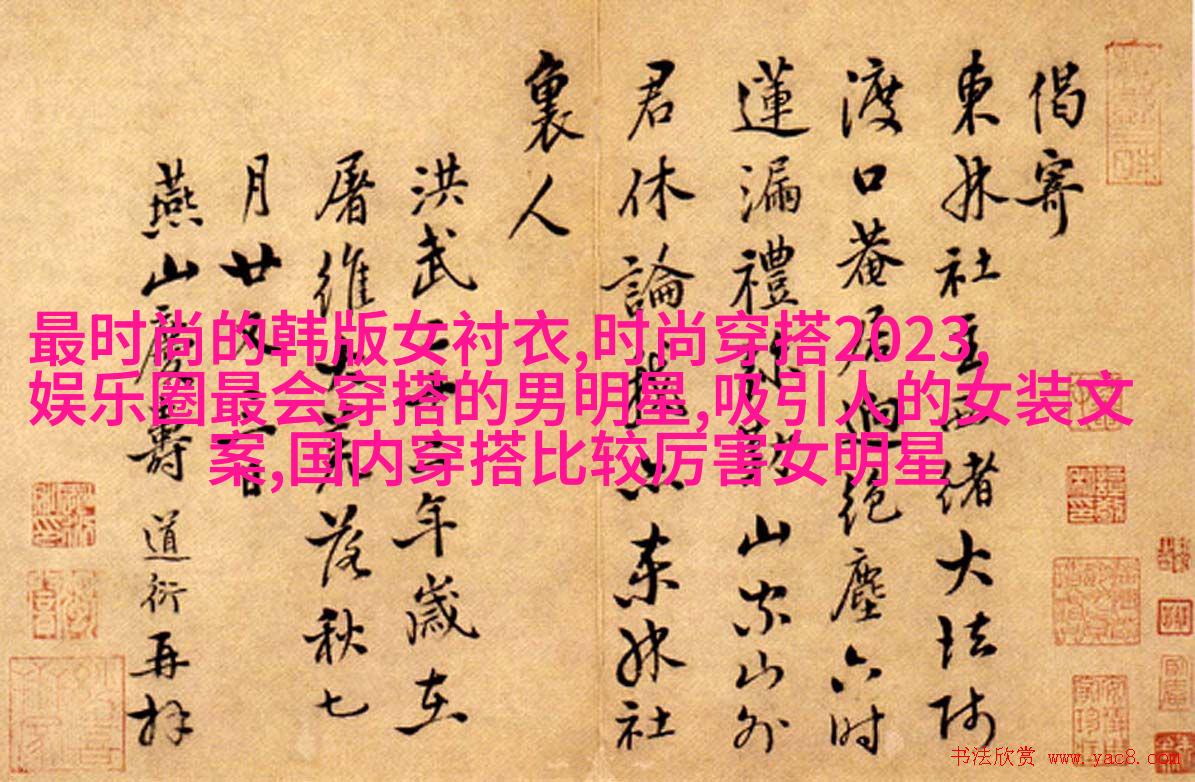 偈寄
東林社主西緒大法師
渡口菴居絕塵六時
蓮漏禮山宗山外
君休論總是東林社
裏人
洪武二十二年歲在
屠維大荒落秋七
月廿日
燕山慶壽道衍再拜
最时尚的韩版女衬衣,时尚穿搭2023,
娱乐圈最会穿搭的男明星,吸引人的女装文
案,国内穿搭比较厉害女明星
书法欣赏 www.yac8.com